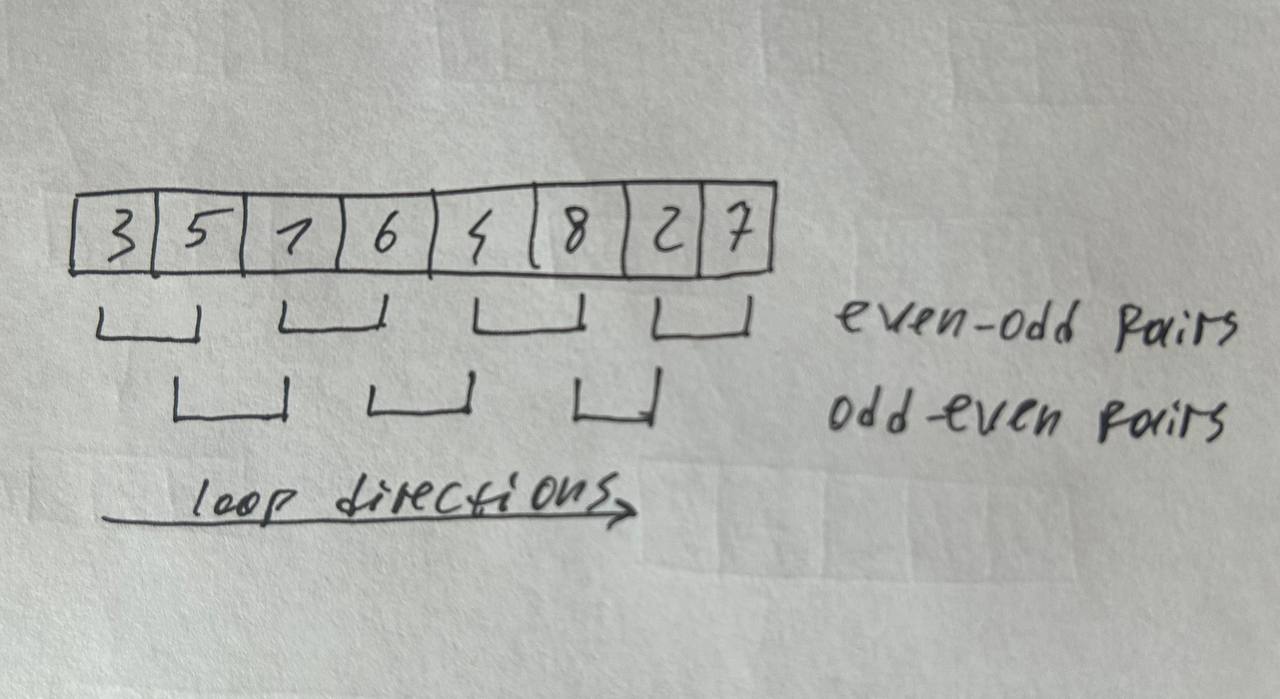 3 5 1 6 4 8 2 7
even-odd pairs
odd-even pairs
loop directions